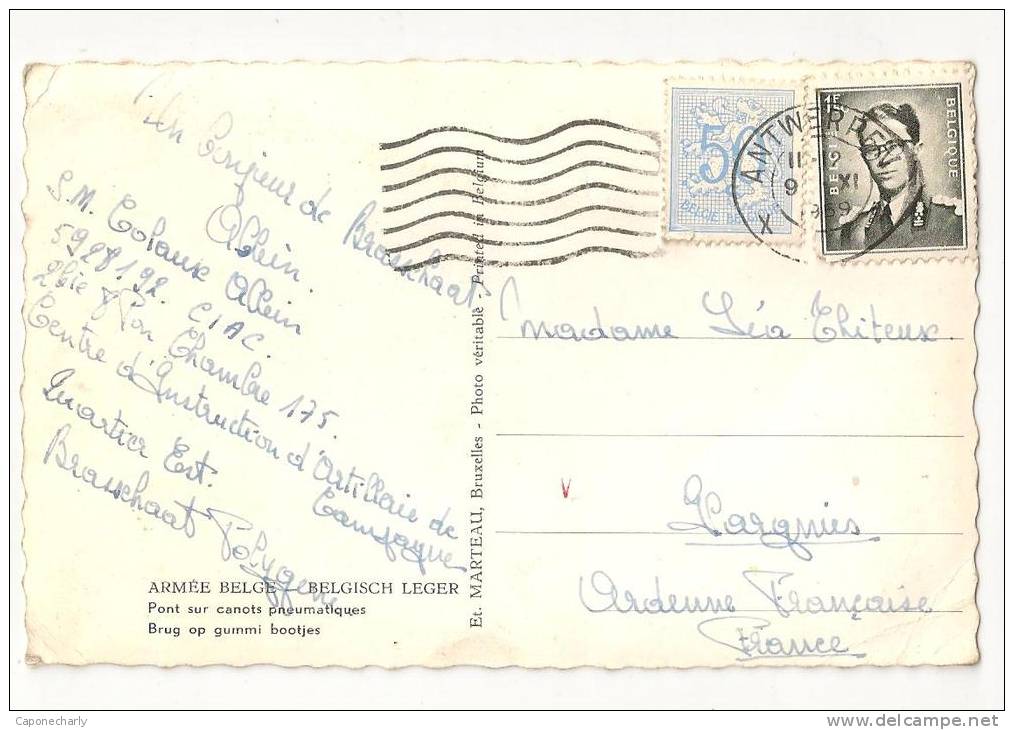 Un bonjour de Brasschaat
Albin.
S.M. Colaux Albin
5928192. C I A C.
2bie Chambre 175.
Centre d'Instruction d'Artillerie de
Campagne
Quartier Est.
Brasschaat Polygone
ARMÉE BELGE — BELGISCH LEGER
Pont sur canots pneumatiques
Brug op gummi bootjes
Et. MARTEAU, Bruxelles - Photo véritable - Printed in Belgium
50
BELGIE BELGIQUE
1F
BELGIE
BELGIQUE
ANTWERPEN X
9 XI
Madame Léa Thiteux.
Hargnies
Ardenne Française
France
Caponecharly
delcampe.net